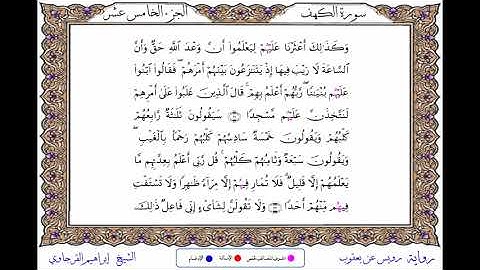 سورة الكهف
الجزء الخامس عشر
وَكَذَٰلِكَ أَعْثَرْنَا عَلَيْهُمْ لِيَعْلَمُوا أَنَّ وَعْدَ اللَّهِ حَقٌّ وَأَنَّ
السَّاعَةَ لَا رَيْبَ فِيهَا إِذْ يَتَنَازَعُونَ بَيْنَهُمْ أَمْرَهُمْ فَقَالُوا ابْنُوا
عَلَيْهُم بُنْيَانًا رَبُّهُمْ أَعْلَمُ بِهِمْ قَالَ الَّذِينَ غَلَبُوا عَلَىٰ أَمْرِهِمْ
لَنَتَّخِذَنَّ عَلَيْهُم مَسْجِدًا سَيَقُولُونَ ثَلَاثَةٌ رَابِعُهُمْ
كَلْبُهُمْ وَيَقُولُونَ خَمْسَةٌ سَادِسُهُمْ كَلْبُهُمْ رَجْمًا بِالْغَيْبِ
وَيَقُولُونَ سَبْعَةٌ وَثَامِنُهُمْ كَلْبُهُمْ قُل رَبِّي أَعْلَمُ بِعِدَّتِهِم مَا
يَعْلَمُهُمْ إِلَّا قَلِيلٌ فَلَا تُمَارِ فِيهُمْ إِلَّا مِرَاءً ظَاهِرًا وَلَا تَسْتَفْتِ
فِيهُم مِنْهُمْ أَحَدًا وَلَا تَقُولَنَّ لِشَاىْءٍ إِنِّي فَاعِلٌ ذَٰلِكَ
رواية رويس عن يعقوب
الإمالة
الإدغام
الشيخ إبراهيم الفرجاوي